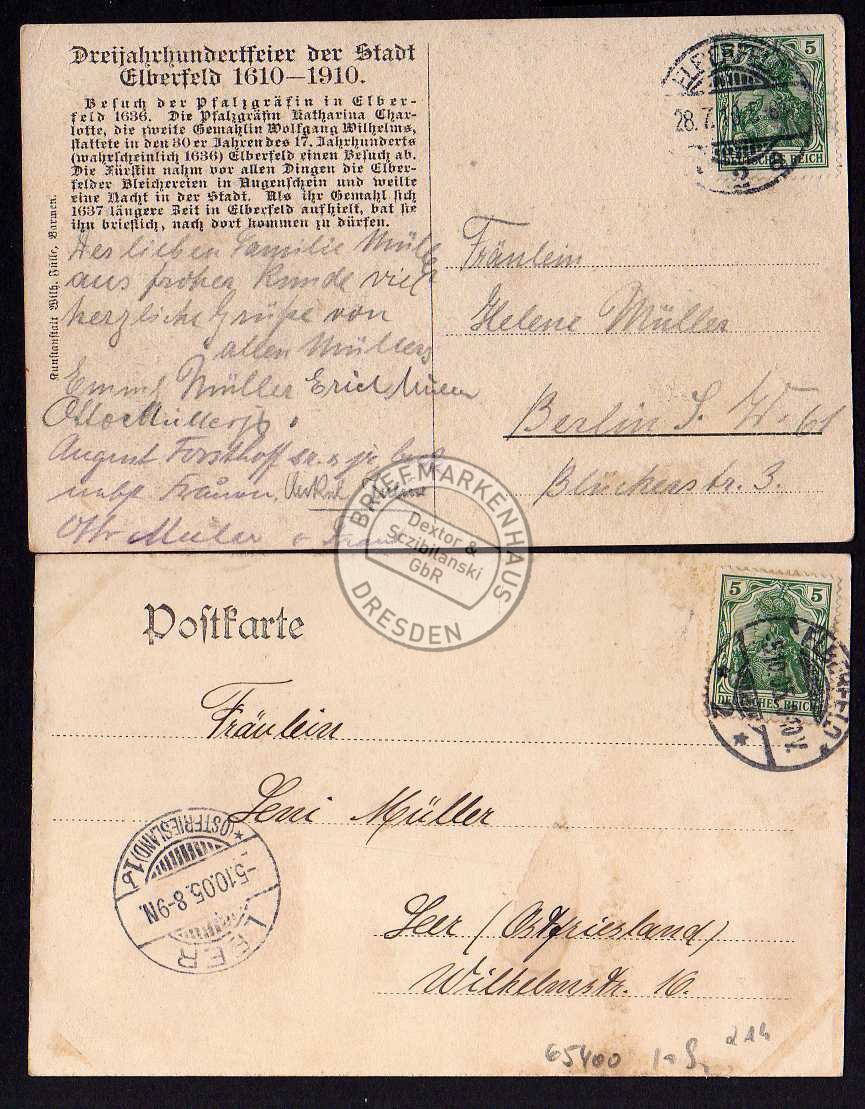 Dreijahrhundertfeier der Stadt
Elberfeld 1610—1910.
Besuch der Pfalzgräfin in Elber-
feld 1636. Die Pfalzgräfin Katharina Char-
lotte, die zweite Gemahlin Wolfgang Wilhelms,
stattete in den 30er Jahren des 17. Jahrhunderts
(wahrscheinlich 1636) Elberfeld einen Besuch ab.
Die Fürstin nahm vor allen Dingen die Elber-
felder Bleichereien in Augenschein und weilte
eine Nacht in der Stadt. Als ihr Gemahl sich
1637 längere Zeit in Elberfeld aufhielt, bat sie
ihn brieflich, nach dort kommen zu dürfen.
Der lieben Familie Müller
aus froher Runde viel
herzliche Grüße von
allen Müllers
Emmy Müller Erich Müller
Otto Müller jr.
August Forsthoff sr. & jr.
nebst Frauen,
Otto Müller & Frau
Kunstanstalt Wilh. Fülle, Barmen.
ELBERFELD
28.7.10
2
5
DEUTSCHES REICH
Fräulein
Helene Müller
Berlin S. W. 61
Blücherstr. 3.
BRIEFMARKENHAUS
Dextor &
Sczibilanski
GbR
DRESDEN
Postkarte
5 5
DEUTSCHES REICH
ELBERFELD
2
Fräulein
Leni Müller
Leer (Ostfriesland)
Wilhelmstr. 16.
(OSTFRIESLAND) 1b
-5.10.05. 8-9N.
LEER
65400